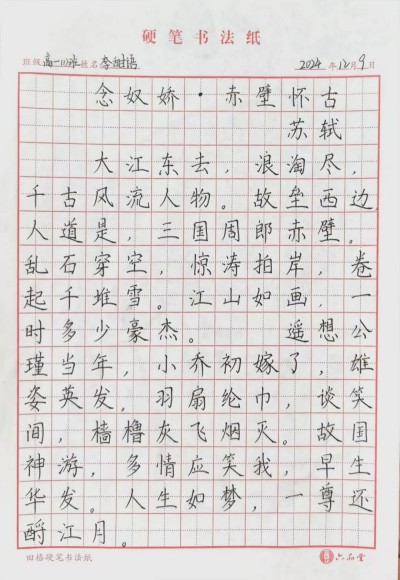 硬笔书法纸
班级 高一11班 姓名 李甜语 2024 年 12 月 9 日
念奴娇·赤壁怀古
苏轼
大江东去，浪淘尽，
千古风流人物。故垒西边，
人道是，三国周郎赤壁。
乱石穿空，惊涛拍岸，卷
起千堆雪。江山如画，一
时多少豪杰。遥想公
瑾当年，小乔初嫁了，雄
姿英发，羽扇纶巾，谈笑
间，樯橹灰飞烟灭。故国
神游，多情应笑我，早生
华发。人生如梦，一尊还
酹江月。
田格硬笔书法纸 六品堂